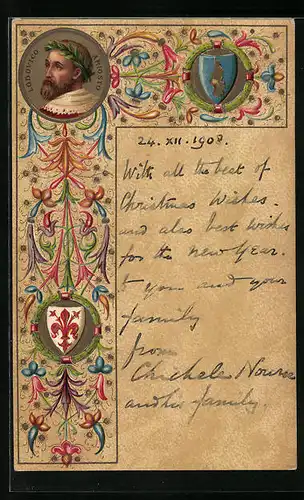 LODOVICO ARIOSTO
24. XII. 1908.
With all the best of
Christmas Wishes.
and also best wishes
for the new Year.
to you and your
family
from
and his family.